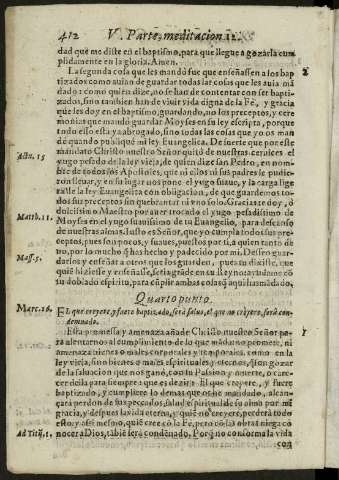 412 V. Parte, meditacion 12.
dad que me diste en el baptismo, para que llegue a gozarla cum
plidamente en la gloria. Amen.
La segunda cosa que les mandò fue que enseñassen a los bap 2
tizados como auian de guardar todas las cosas que les auia mã
dado: como quien dize, no se han de contentar con ser bapti-
zados, sino tambien han de viuir vida digna de la Fè, y gracia
que les doy en el baptismo, guardando, no los preceptos, y cere
monias que mandó guardar Moyses en su ley escripta, porque
todo esso està ya abrogado, sino todas las cosas que yo os man
dè quando publiquè mi ley Euangelica. De suerte que por este
Actu. 15 mandato Christo nuestro Señor quitó de nuestras ceruices el
yugo pesado de la ley vieja, de quien dize San Pedro, en nom-
bre de todos los Apostoles, que ni ellos ni sus padres le pudie-
ron lleuar, y en su lugar nos pone el yugo suaue, y la carga lige
ra de la ley Euangelica con obligacion, de que guardemos to-
dos sus preceptos sin quebrantar ni vno solo. Gracias te doy, ó
Matth. 11. dulcissimo Maestro por auer trocado el yugo pesadissimo de
Moyses en el yugo suauissimo de tu Euangelio, para descanso
de nuestras almas. Iusto es Señor, que yo cumpla todos tus pre-
ceptos, pues son pocos, y suaues, puestos por ti, a quien tanto de
uo, por lo mucho q̃ has hecho y padecido por mi. Desseo guar-
Matt. 5. darlos y enseñar a otros que los guarden, pues tu dixiste, que
quié hiziesse y enseñasse, seria grãde en tu Reyno: ayudame cõ
tu doblado espiritu, para cũplir ambas cosas q̃ aqui has mãdado,
Quarto punto.
Marc. 16. EL que creyere, y fuere baptizado, serà saluo, el que no creyere, serà con-
demnado.
Esta promessa y amenaza añade Christo nuestro Señor pa- 1
ra alentarnos al cumplimiento de lo que manda: no promete, ni
amenaza bienes o males corporales y temporales, como en la
ley vieja, sino bienes o males espirituales y eternos, que son gozar
de la saluacion que nos ganó, con su Passion y muerte, o care-
cer della para siempre: que es dezir: El que creyere, y fuere
baptizado, y cumpliere lo demas que os he mandado, alcan-
çarà perdon de sus peccados, salud espiritual de su alma por mi
gracia, y despues la vida eterna, y quiẽ no creyere, perderà todo
esto: y assi mesmo, quiẽ cree cõ la Fè, pero cõ las obras niega co
Ad Titũ, 1. nocer a Dios, tãbiẽ serà condenado. Porq̃ no conforma la vida
con